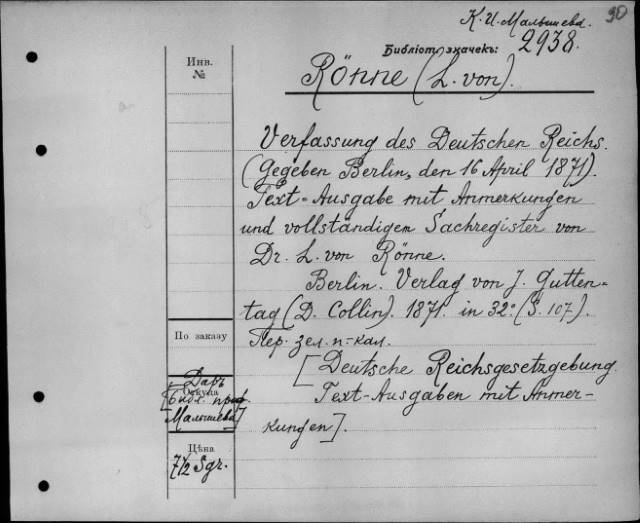 К. И. Малышева.
90
Библіот. значекъ: 2938.
Инв.
№
Rönne (L. von).
Verfassung des Deutschen Reichs.
(Gegeben Berlin, den 16 April 1871).
Text-Ausgabe mit Anmerkungen
und vollständigem Sachregister von
Dr. L. von Rönne.
Berlin. Verlag von J. Gutten-
tag (D. Collin). 1871. in 32° (S. 107).
По заказу
Пер. зел. п-кал.
[Deutsche Reichsgesetzgebung.
Text-Ausgaben mit Anmer-
kungen].
Даръ
Откуда
[Библ. проф.
Малышева]
Цѣна
7 1/2 Sgr.